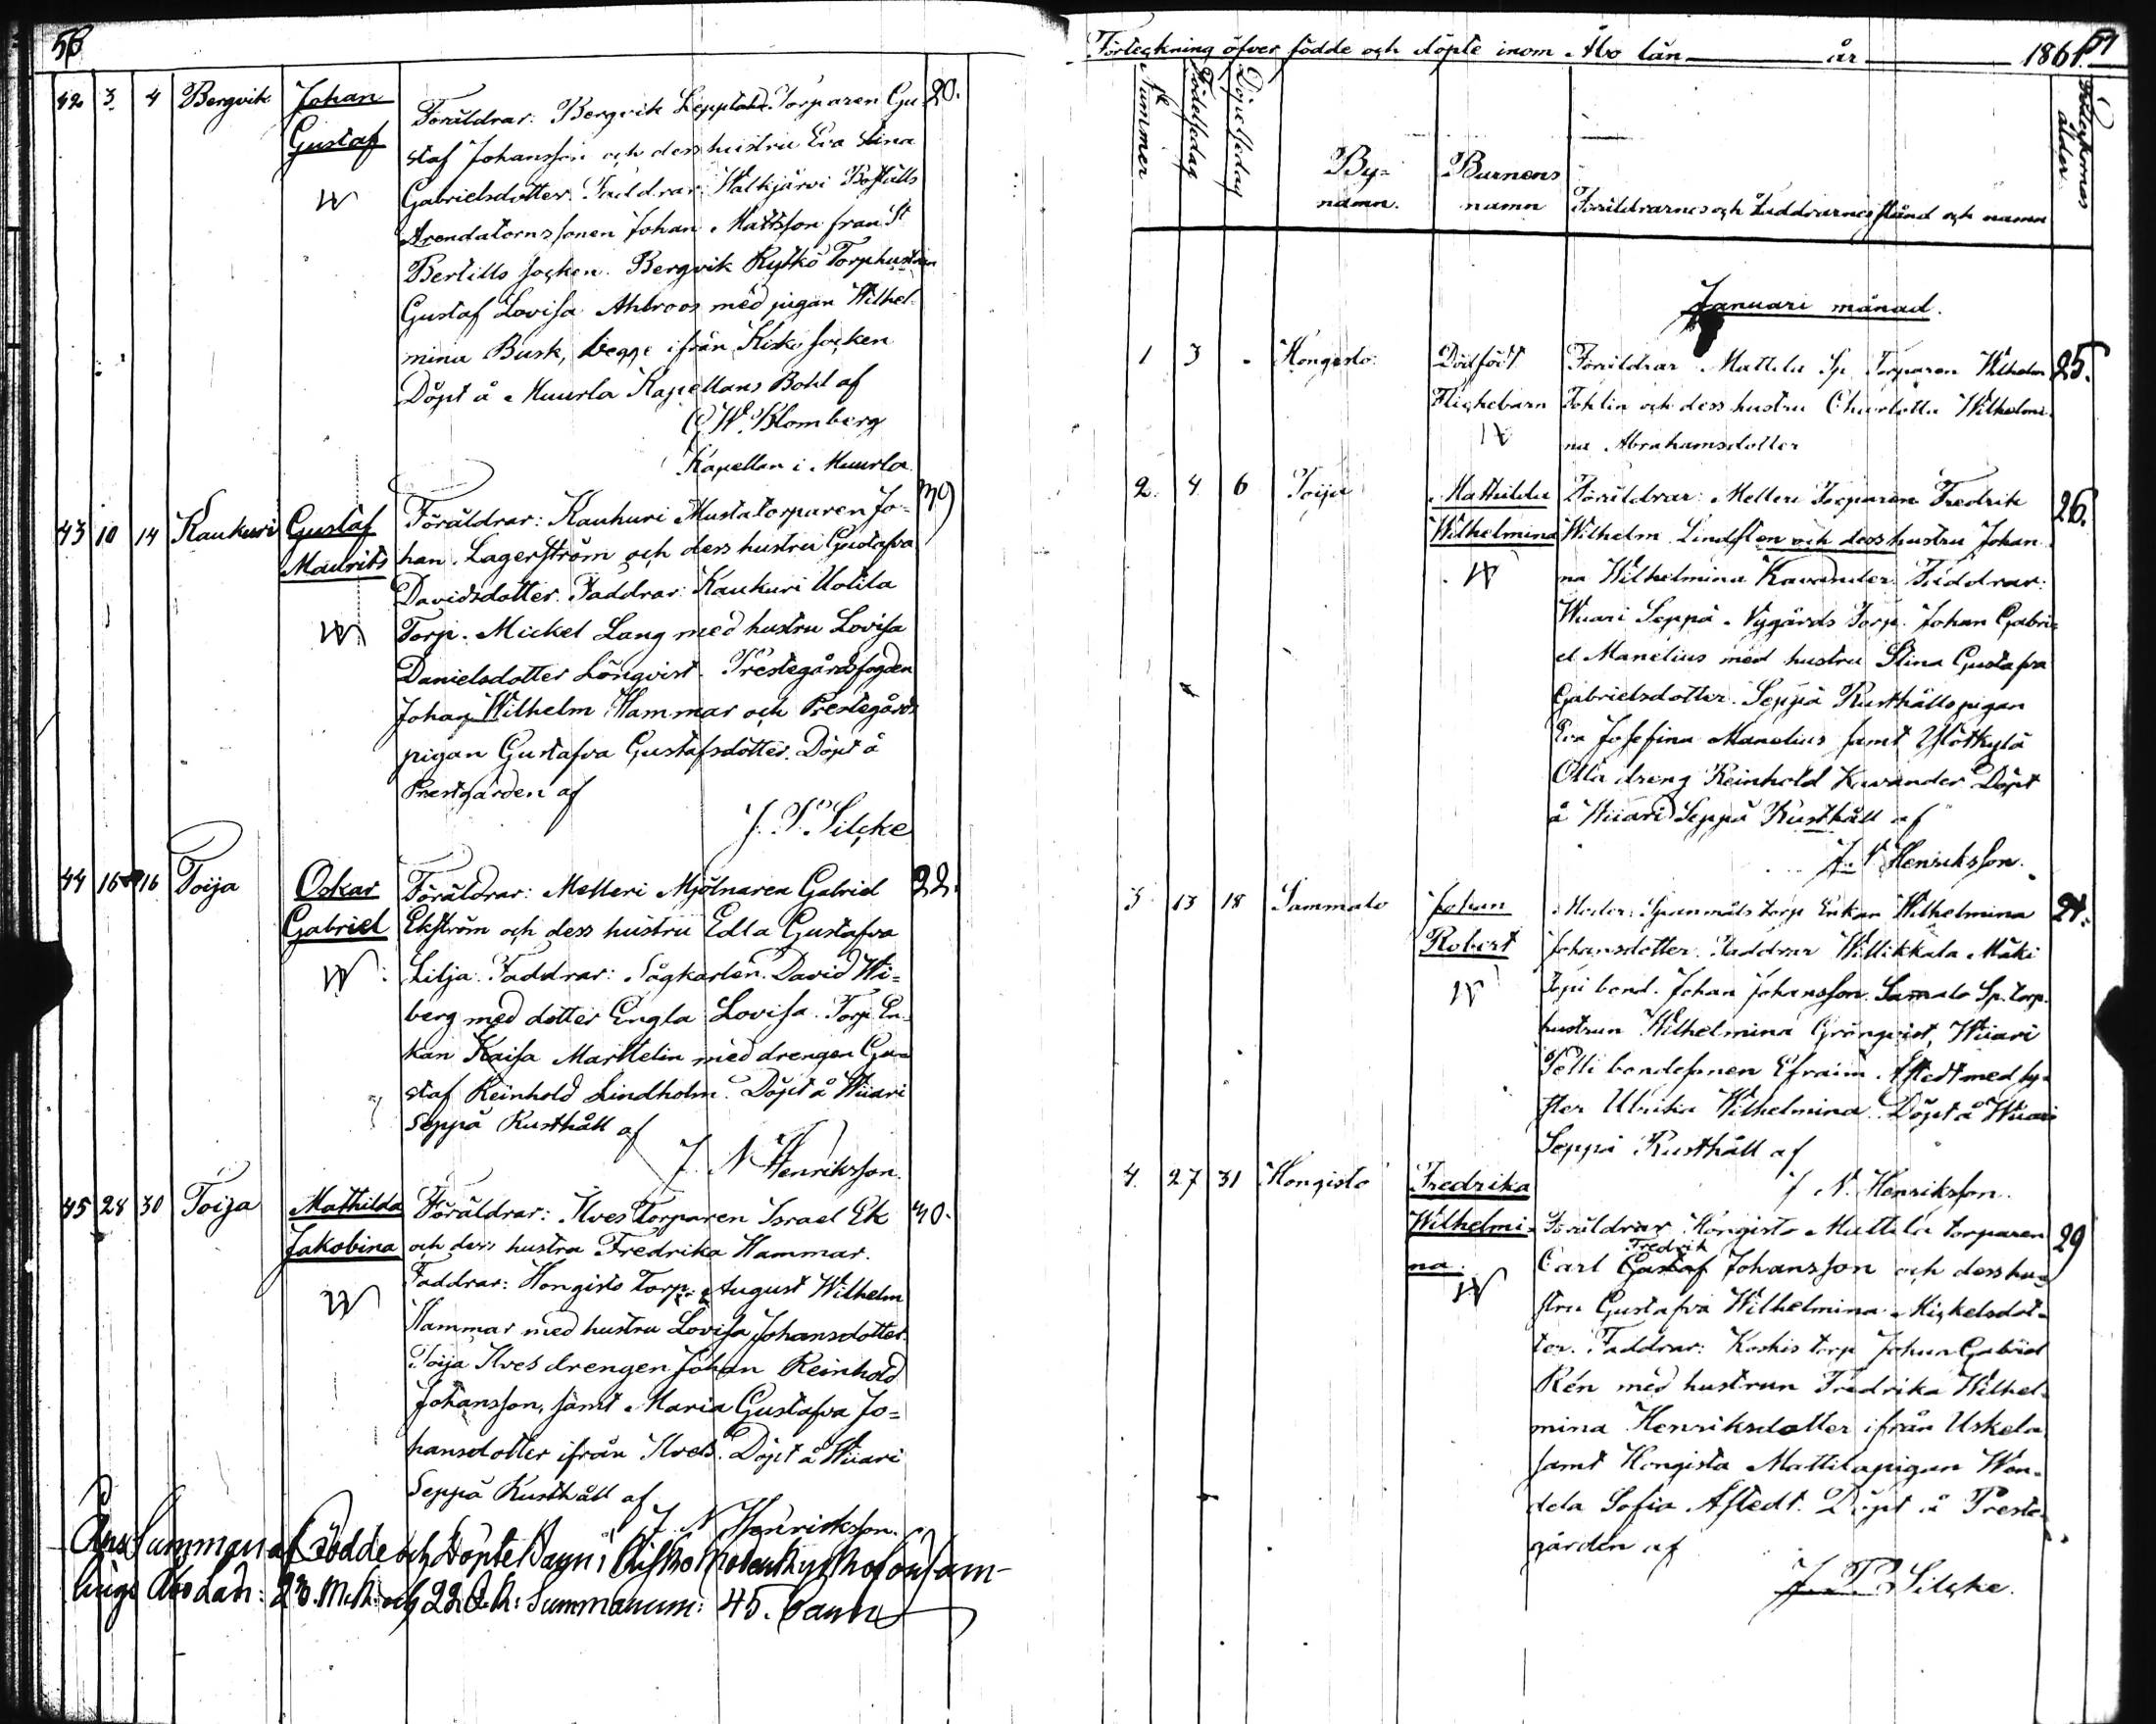 58
42 3. 4 Bergvik Johan Gustaf
Föräldrar: Bergvik Torparen Gu- 20.
staf Johansson och dess hustru Eva Stina
Gabrielsdotter. Faddrar: Walkjärvi Boställs
Arendatornssonen Johan Mattsson från St
Bertills socken. Bergvik Kytkö Torphustrun
Gustaf Lovisa Ahlroos med pigan Wilhel-
mina Busk, begge ifrån Kisko socken
Döpt å Muurla Kapellans Bohl af
G W. Blomberg
Kapellan i Muurla.
43 10 14 Kaukuri Gustaf Maurits
Föräldrar: Kaukuri Mustatorparen Jo-
han Lagerström och dess hustru Gustafva
Davidsdotter. Faddrar: Kaukuri Uotila
Torp. Mickel Lang med hustru Lovisa
Danielsdotter Lönqvist. Prestegårdsfogden
Johan Wilhelm Hammar och Prestegårds
pigan Gustafva Gustafsdotter. Döpt å
Prestgården af
J. P. Silcke
44 16 16 Toija Oskar Gabriel
Föräldrar: Melleri Mjölnaren Gabriel 22.
Ekström och dess hustru Edla Gustafva
Lilja. Faddrar: Sågkarlen David Wi-
berg med dotter Engla Lovisa. Torp. En-
kan Kaisa Marttelin med drengen Gu-
staf Reinhold Lindholm. Döpt å Wiiari
Seppä Rusthåll af
J. N. Henriksson.
45 28 30 Toija Mathilda Jakobina
Föräldrar: Ilves Torparen Israel Ek 40.
och dess hustru Fredrika Hammar.
Faddrar: Hongisto Torp. August Wilhelm
Hammar med hustru Lovisa Johansdotter
Toija Ilves drengen Johan Reinhold
Johansson, samt Maria Gustafva Jo-
hansdotter ifrån Ilves. Döpt å Wiiari
Seppä Rusthåll af
J. N. Henriksson.
Summan af födde och Döpte Barn i Kisko
Åbo Län: 23. M.K. och 22 Q.K. Summarum: 45. Barn
Förteckning öfver födde och döpte inom Åbo län år 1861.
Nummer Födelsedag Döpelsedag By-namn. Barnens namn Föräldrarnes och Faddrarnes stånd och namn Föderskornas ålder
Januari månad.
1 3 - Hongisto. Dödfödt Flickebarn
Föräldrar Mattila Sp. Torparen Wilhelm 25.
Tohlin och dess hustru Charlotta Wilhelmi-
na Abrahamsdotter
2. 4 6 Toija Mathilda Wilhelmina
Föräldrar: Melleri Torparen Fredrik 26.
Wilhelm Lindsten och dess hustru Johan-
na Wilhelmina Kavander. Faddrar:
Wiiari Seppä Nygårds Torp. Johan Gabri-
el Manelius med hustru Stina Gustafva
Gabrielsdotter. Seppä Rusthålls pigan
Eva Josefina Manelius samt Ylötkylä
Olla dreng Reinhold Kavander Döpt
å Wiiari Seppä Rusthåll af
J. N. Henriksson.
3 13 18 Sammalo Johan Robert
Moder: Spanmåls torp Enkan Wilhelmina
Johansdotter. Faddrar Willikkala Mäki
Topi bond. Johan Johansson. Samalo Sp. torp.
hustrun Wilhelmina Grönqvist, Wiiari
Pelli bondesonen Efraim Afstedt med sy-
ster Ulrika Wilhelmina. Döpt å Wiiari
Seppä Rusthåll af
J. N. Henriksson.
4. 27 31 Hongisto Fredrika Wilhelmi-na.
Föräldrar Hongisto Mattila torparen 29
Fredrik
Carl Gustaf Johansson och dess hu-
stru Gustafva Wilhelmina Mickelsdot-
ter. Faddrar: Koskis torp Johan Gabriel
Rén med hustrun Fredrika Wilhel-
mina Henriksdotter ifrån Uskela
samt Hongista Mattilapigan Wen-
dela Sofia Afstedt. Döpt å Preste-
gården af
J. P. Silcke.